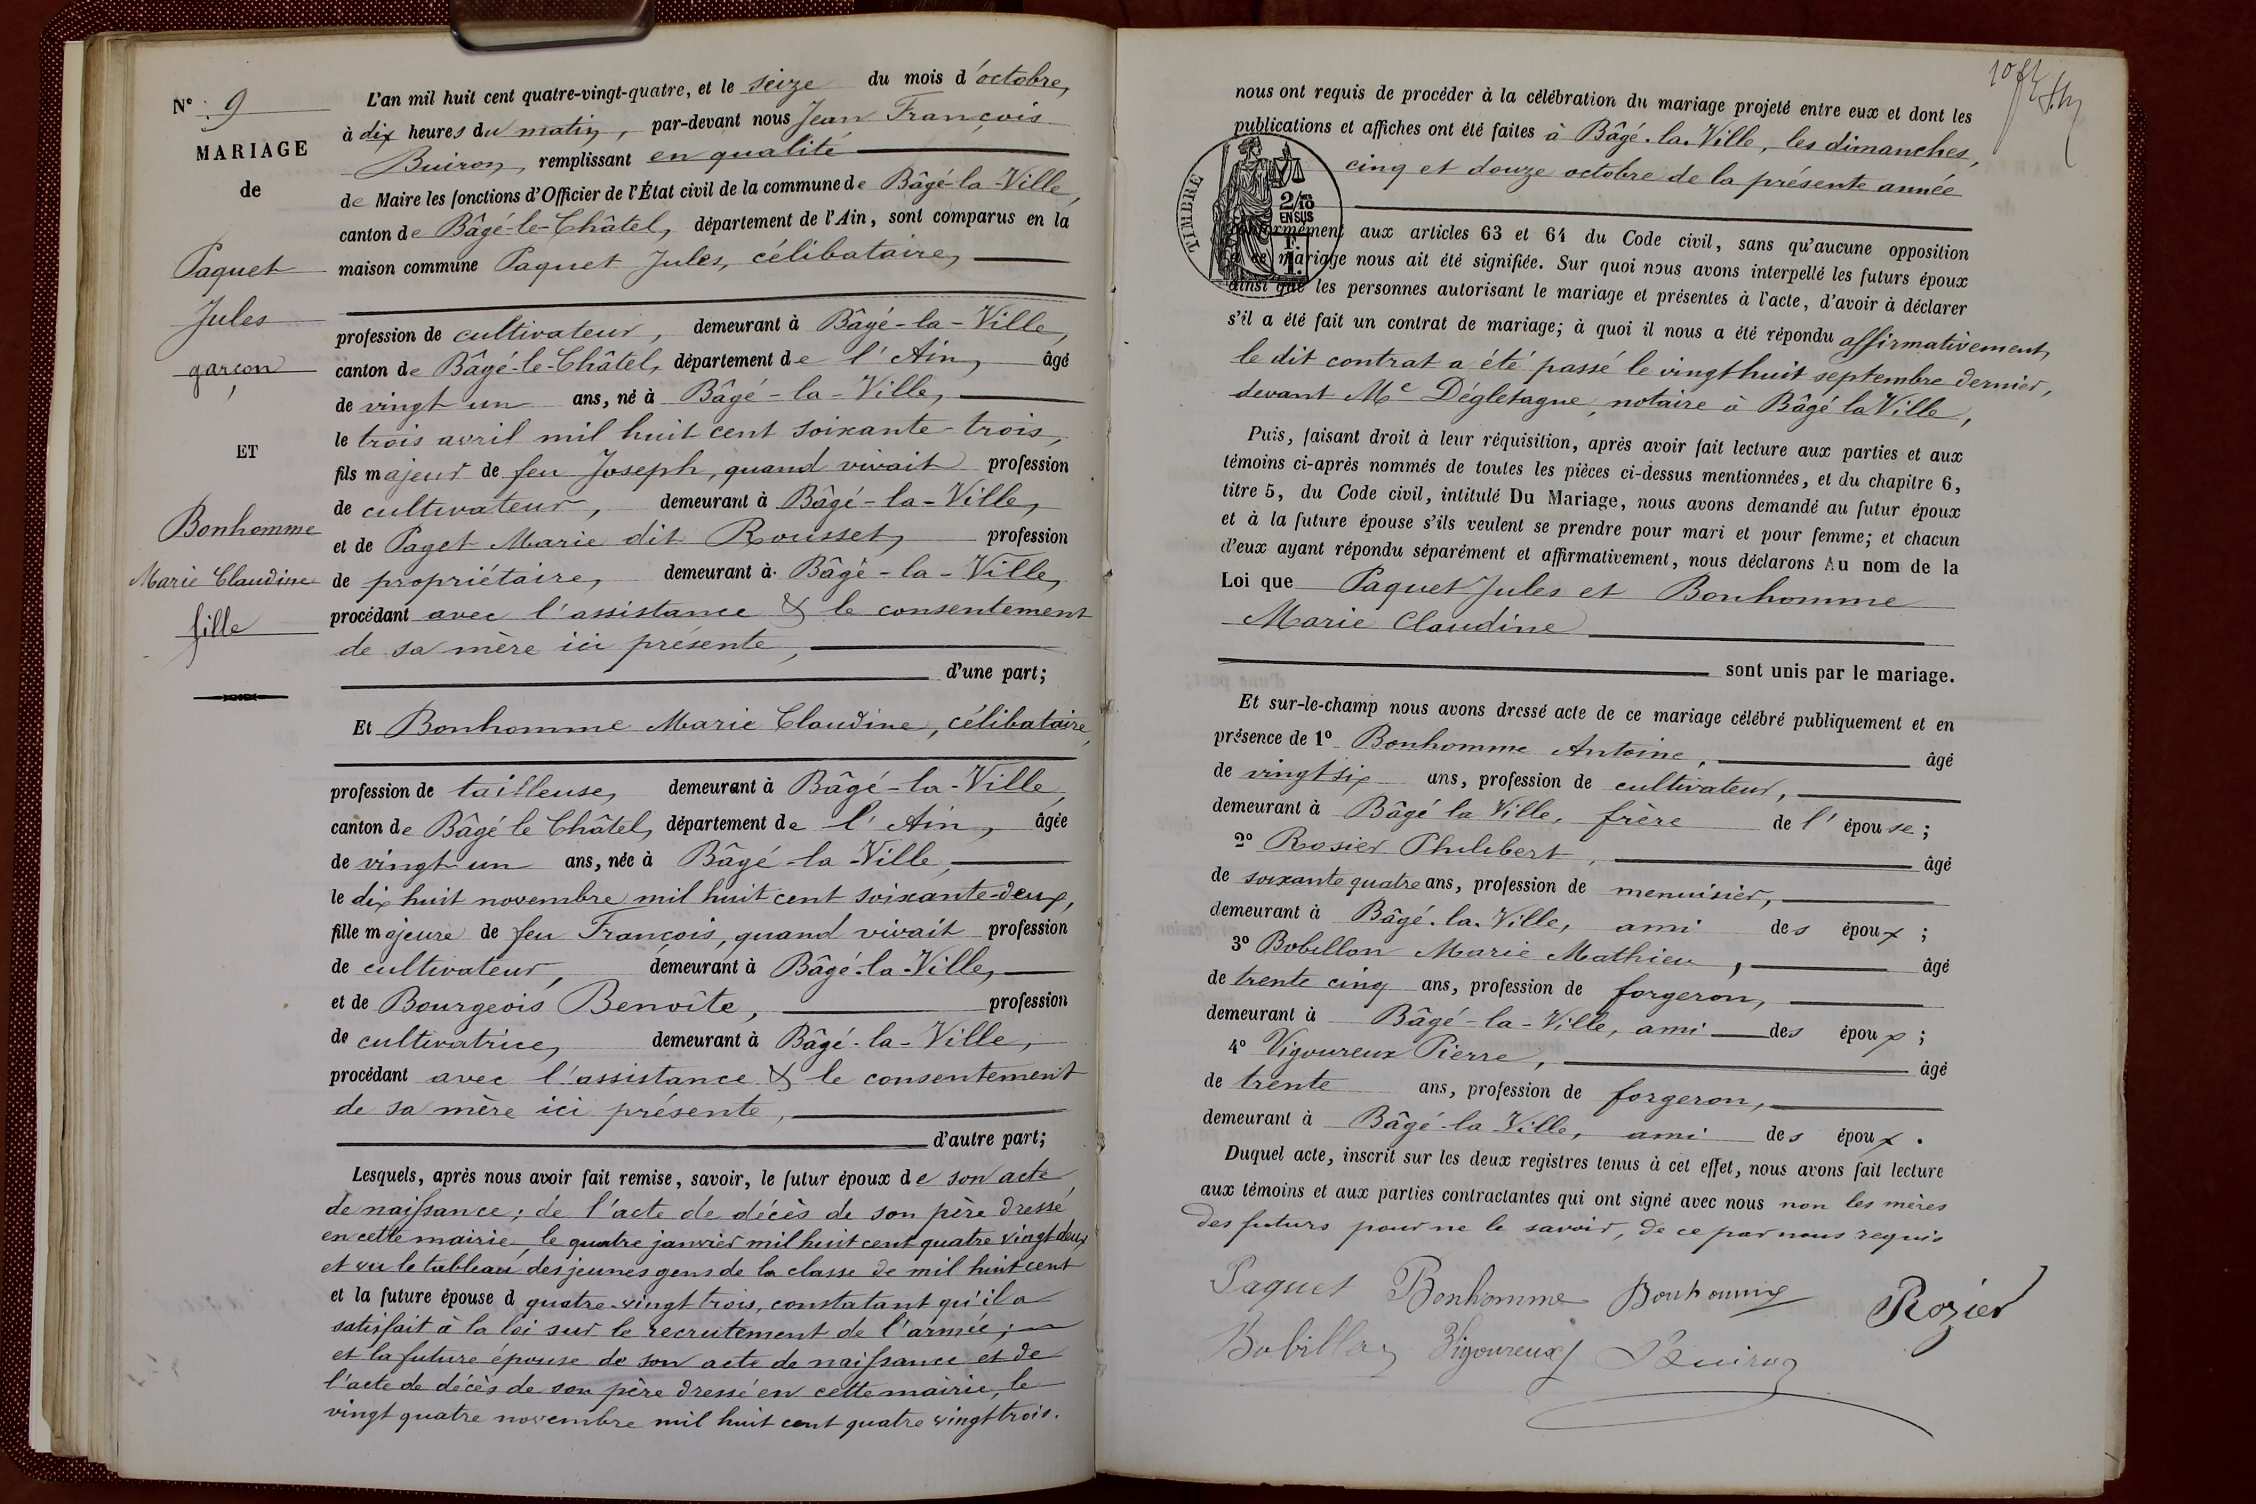 N° 9
MARIAGE
de
Paquet
Jules
garçon
ET
Bonhomme
Marie Claudine
fille
L'an mil huit cent quatre-vingt-quatre, et le seize du mois d'octobre,
à dix heures du matin, par-devant nous Jean François
Buiron, remplissant en qualité
de Maire les fonctions d'Officier de l'État civil de la commune de Bâgé-la-Ville,
canton de Bâgé-le-Châtel, département de l'Ain, sont comparus en la
maison commune Paquet Jules, célibataire,
profession de cultivateur, demeurant à Bâgé-la-Ville,
canton de Bâgé-le-Châtel, département de l'Ain, âgé
de vingt un ans, né à Bâgé-la-Ville,
le trois avril mil huit cent soixante-trois,
fils majeur de feu Joseph, quand vivait profession
de cultivateur, demeurant à Bâgé-la-Ville,
et de Paget Marie dit Rousset, profession
de propriétaire, demeurant à Bâgé-la-Ville,
procédant avec l'assistance & le consentement
de sa mère ici présente,
d'une part;
Et Bonhomme Marie Claudine, célibataire,
profession de tailleuse, demeurant à Bâgé-la-Ville,
canton de Bâgé le Châtel, département de l'Ain, âgée
de vingt un ans, née à Bâgé-la-Ville,
le dix huit novembre mil huit cent soixante-deux,
fille majeure de feu François, quand vivait profession
de cultivateur, demeurant à Bâgé-la-Ville,
et de Bourgeois Benoîte, profession
de cultivatrice, demeurant à Bâgé-la-Ville,
procédant avec l'assistance & le consentement
de sa mère ici présente,
d'autre part;
Lesquels, après nous avoir fait remise, savoir, le futur époux de son acte
de naissance; de l'acte de décès de son père dressé
en cette mairie, le quatre janvier mil huit cent quatre vingt deux
et vu le tableau des jeunes gens de la classe de mil huit cent
et la future épouse d quatre-vingt trois, constatant qu'il a
satisfait à la loi sur le recrutement de l'armée;
et la future épouse de son acte de naissance et de
l'acte de décès de son père dressé en cette mairie, le
vingt quatre novembre mil huit cent quatre vingt trois.
nous ont requis de procéder à la célébration du mariage projeté entre eux et dont les
publications et affiches ont été faites à Bâgé-la-Ville, les dimanches,
cinq et douze octobre de la présente année
TIMBRE
2/10
EN SUS
1 F.
conformément aux articles 63 et 64 du Code civil, sans qu'aucune opposition
à ce mariage nous ait été signifiée. Sur quoi nous avons interpellé les futurs époux
ainsi que les personnes autorisant le mariage et présentes à l'acte, d'avoir à déclarer
s'il a été fait un contrat de mariage; à quoi il nous a été répondu affirmativement,
le dit contrat a été passé le vingt huit septembre dernier,
devant Me Dégletagne, notaire à Bâgé la Ville,
Puis, faisant droit à leur réquisition, après avoir fait lecture aux parties et aux
témoins ci-après nommés de toutes les pièces ci-dessus mentionnées, et du chapitre 6,
titre 5, du Code civil, intitulé Du Mariage, nous avons demandé au futur époux
et à la future épouse s'ils veulent se prendre pour mari et pour femme; et chacun
d'eux ayant répondu séparément et affirmativement, nous déclarons Au nom de la
Loi que Paquet Jules et Bonhomme
Marie Claudine
sont unis par le mariage.
Et sur-le-champ nous avons dressé acte de ce mariage célébré publiquement et en
présence de 1° Bonhomme Antoine, âgé
de vingt six ans, profession de cultivateur,
demeurant à Bâgé la Ville, frère de l'épouse;
2° Rosier Philibert, âgé
de soixante quatre ans, profession de menuisier,
demeurant à Bâgé-la-Ville, ami des époux;
3° Bobillon Marie Mathieu, âgé
de trente cinq ans, profession de forgeron,
demeurant à Bâgé-la-Ville, ami des époux;
4° Vigoureux Pierre, âgé
de trente ans, profession de forgeron,
demeurant à Bâgé-la-Ville, ami des époux.
Duquel acte, inscrit sur les deux registres tenus à cet effet, nous avons fait lecture
aux témoins et aux parties contractantes qui ont signé avec nous non les mères
des futurs pour ne le savoir, de ce par nous requis
Paquet Bonhomme Bonhomme Rozier
Bobillon Vigoureux Buiron